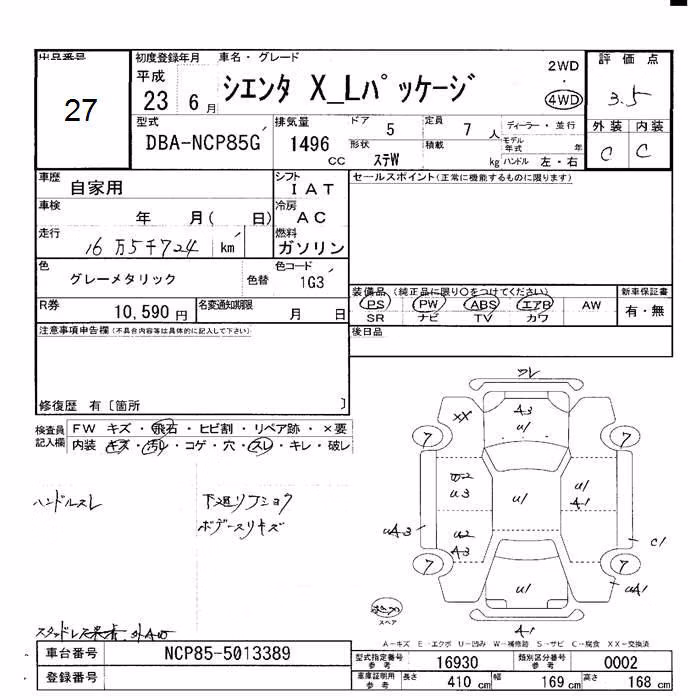 出品番号
27
初度登録年月
車名・グレード
平成
23 6月
シエンタ X_Lパッケージ
2WD
・
4WD
評価点
3.5
外装 内装
C C
型式
DBA-NCP85G
排気量
1496
CC
ドア
5
定員
7 人
形状
ステW
積載
kg
ディーラー・並行
モデル年式 年
ハンドル 左・右
車歴
自家用
シフト
IAT
車検
年 月( 日)
冷房
AC
走行
16万5千724 km
燃料
ガソリン
色
グレーメタリック
色替
色コード
1G3
R券
10,590 円
名変通知期限
月 日
セールスポイント(正常に機能するものに限ります)
装備品(純正品に限り○をつけてください)
PS PW ABS エアB AW
SR ナビ TV カワ
新車保証書
有・無
後日品
注意事項申告欄(不具合内容等は具体的に記入して下さい)
修復歴 有〔箇所 〕
検査員記入欄
FW キズ・飛石・ヒビ割・リペア跡・×要
内装 キズ・汚れ・コゲ・穴・スレ・キレ・破レ
ハンドルスレ
下廻リフショク
ボデースリキズ
スレ
XX
A3
U1
7
7
U2
U3
U1
U1
A1
U2
A3
UA3
C1
7
7
U1
UA1
A1
スペア
A-キズ E-エクボ U-凹み W-補修跡 S-サビ C-腐食 XX-交換済
車台番号
NCP85-5013389
登録番号
型式指定番号
参考
16930
類別区分番号
参考
0002
車庫証明用
参考
長さ
410 cm
幅
169 cm
高さ
168 cm